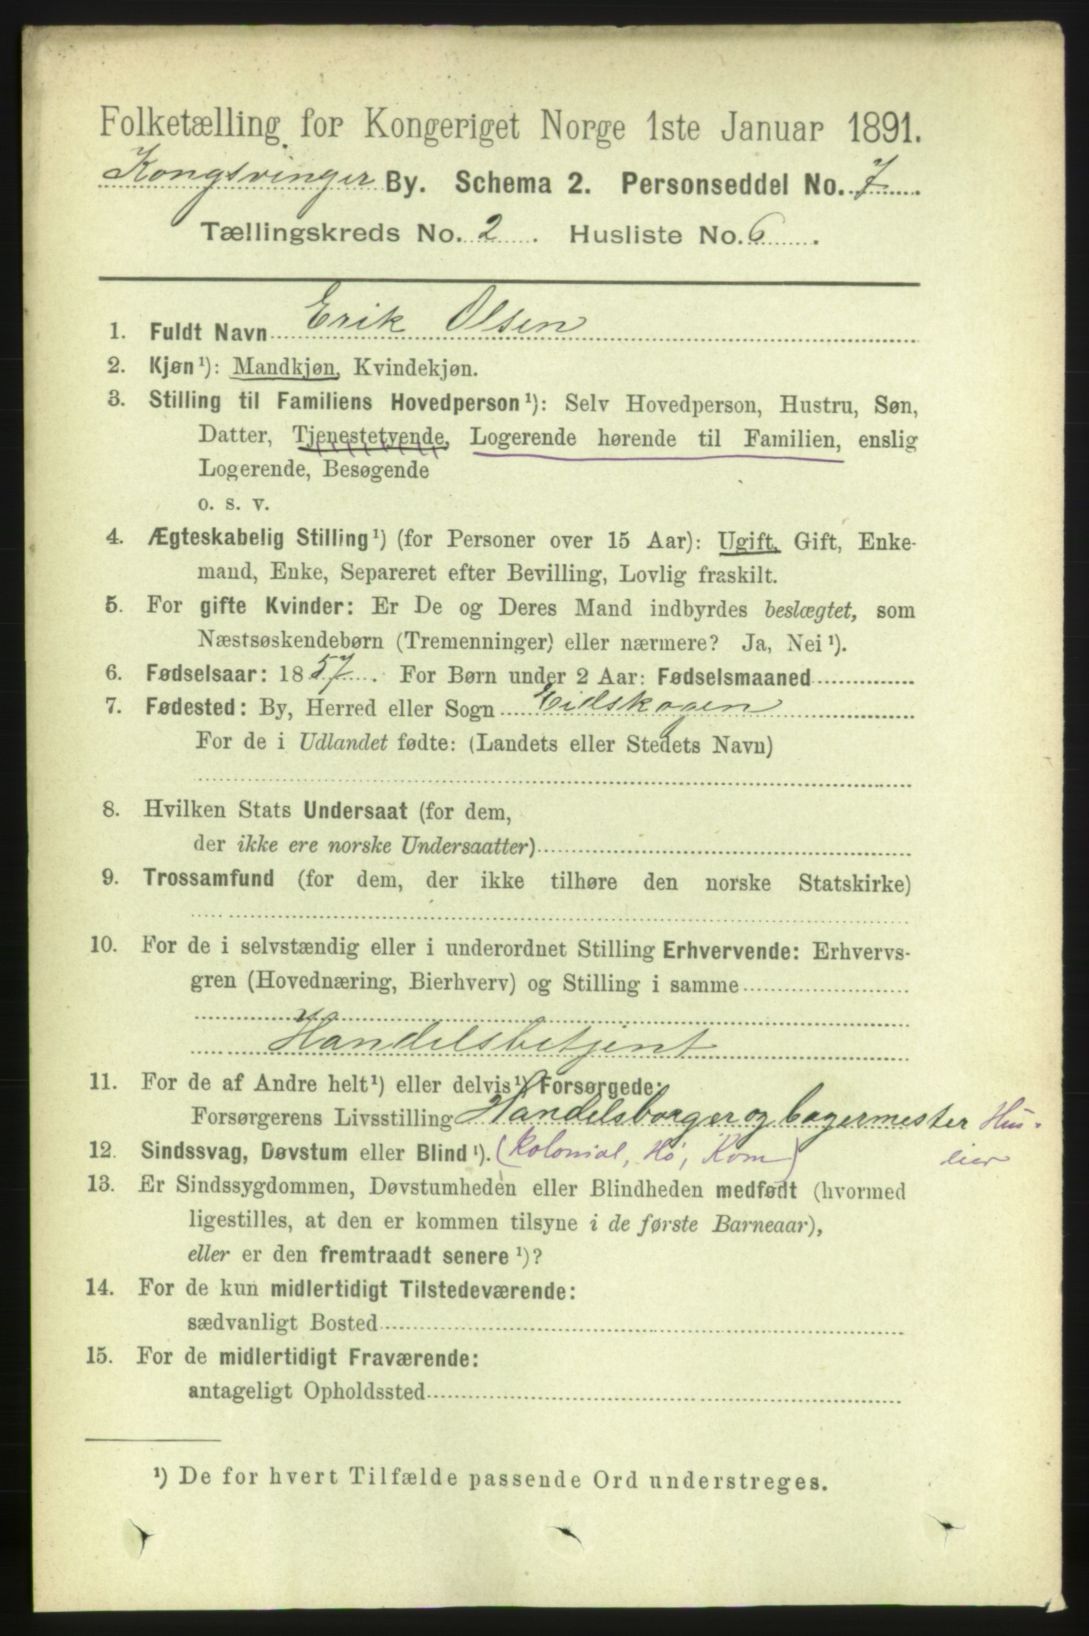 Folketælling for Kongeriget Norge 1ste Januar 1891.
Kongsvinger By. Schema 2. Personseddel No. 7.
Tællingskreds No. 2. Husliste No. 6.
1. Fuldt Navn Erik Olsen
2. Kjøn ¹): Mandkjøn, Kvindekjøn.
3. Stilling til Familiens Hovedperson ¹): Selv Hovedperson, Hustru, Søn,
Datter, Tjenestetyende, Logerende hørende til Familien, enslig
Logerende, Besøgende
o. s. v.
4. Ægteskabelig Stilling ¹) (for Personer over 15 Aar): Ugift, Gift, Enke-
mand, Enke, Separeret efter Bevilling, Lovlig fraskilt.
5. For gifte Kvinder: Er De og Deres Mand indbyrdes beslægtet, som
Næstsøskendebørn (Tremenninger) eller nærmere? Ja, Nei ¹).
6. Fødselsaar: 1857. For Børn under 2 Aar: Fødselsmaaned
7. Fødested: By, Herred eller Sogn Eidskogen
For de i Udlandet fødte: (Landets eller Stedets Navn)
8. Hvilken Stats Undersaat (for dem,
der ikke ere norske Undersaatter)
9. Trossamfund (for dem, der ikke tilhøre den norske Statskirke)
10. For de i selvstændig eller i underordnet Stilling Erhvervende: Erhvervs-
gren (Hovednæring, Bierhverv) og Stilling i samme
Handelsbetjent
11. For de af Andre helt ¹) eller delvis ¹) Forsørgede:
Forsørgerens Livsstilling Handelsborger og bagermester Hus-
12. Sindssvag, Døvstum eller Blind ¹). (Kolonial, Hø, Korn) eier
13. Er Sindssygdommen, Døvstumheden eller Blindheden medfødt (hvormed
ligestilles, at den er kommen tilsyne i de første Barneaar),
eller er den fremtraadt senere ¹)?
14. For de kun midlertidigt Tilstedeværende:
sædvanligt Bosted
15. For de midlertidigt Fraværende:
antageligt Opholdssted
¹) De for hvert Tilfælde passende Ord understreges.